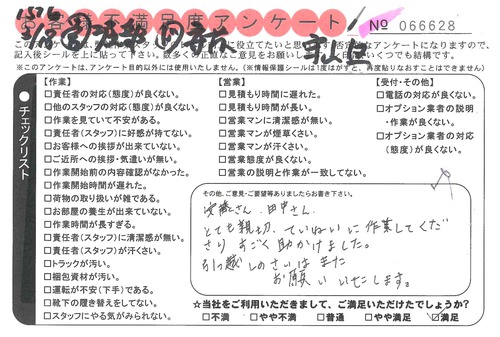 お客様不満足度アンケート
No 066628
守山区
記入後シールを上に貼って下さい。数多くの正直なご意見をお願い
いくつでも結構です。
※このアンケートは、アンケート目的以外には使用いたしません。(※情報保護シールは1度はがすと、再度貼りなおすことはできません)
チェックリスト
【作業】
□責任者の対応(態度)が良くない。
□他のスタッフの対応(態度)が良くない。
□作業を見ていて不安がある。
□責任者(スタッフ)に好感が持てない。
□お客様への挨拶が出来ていない。
□ご近所への挨拶・気遣いが無い。
□作業開始前の内容確認がなかった。
□作業開始時間が遅れた。
□荷物の取り扱いが雑である。
□お部屋の養生が出来ていない。
□作業時間が長すぎる。
□責任者(スタッフ)に清潔感が無い。
□責任者(スタッフ)が汗くさい。
□トラックが汚い。
□梱包資材が汚い。
□運転が不安(下手)である。
□靴下の履き替えをしてない。
□スタッフにやる気がみられない。
【営業】
□見積もり時間に遅れた。
□見積もり時間が長い。
□営業マンに清潔感が無い。
□営業マンが煙草くさい。
□営業マンが汗くさい。
□営業態度が良くない。
□営業の説明と作業が一致してない。
【受付・その他】
□電話の対応が良くない。
□オプション業者の説明
・作業が良くない。
□オプション業者の対応
(態度)が良くない。
その他、ご意見・ご要望等ありましたらお書き下さい。
安藤さん、田中さん、
とても親切、ていねいに作業してくだ
さり すごく助かりました。
引っ越しのさいはまた
お願いいたします。
☆当社をご利用いただきまして、ご満足いただけたでしょうか?
□不満 □やや不満 □普通 □やや満足 □満足